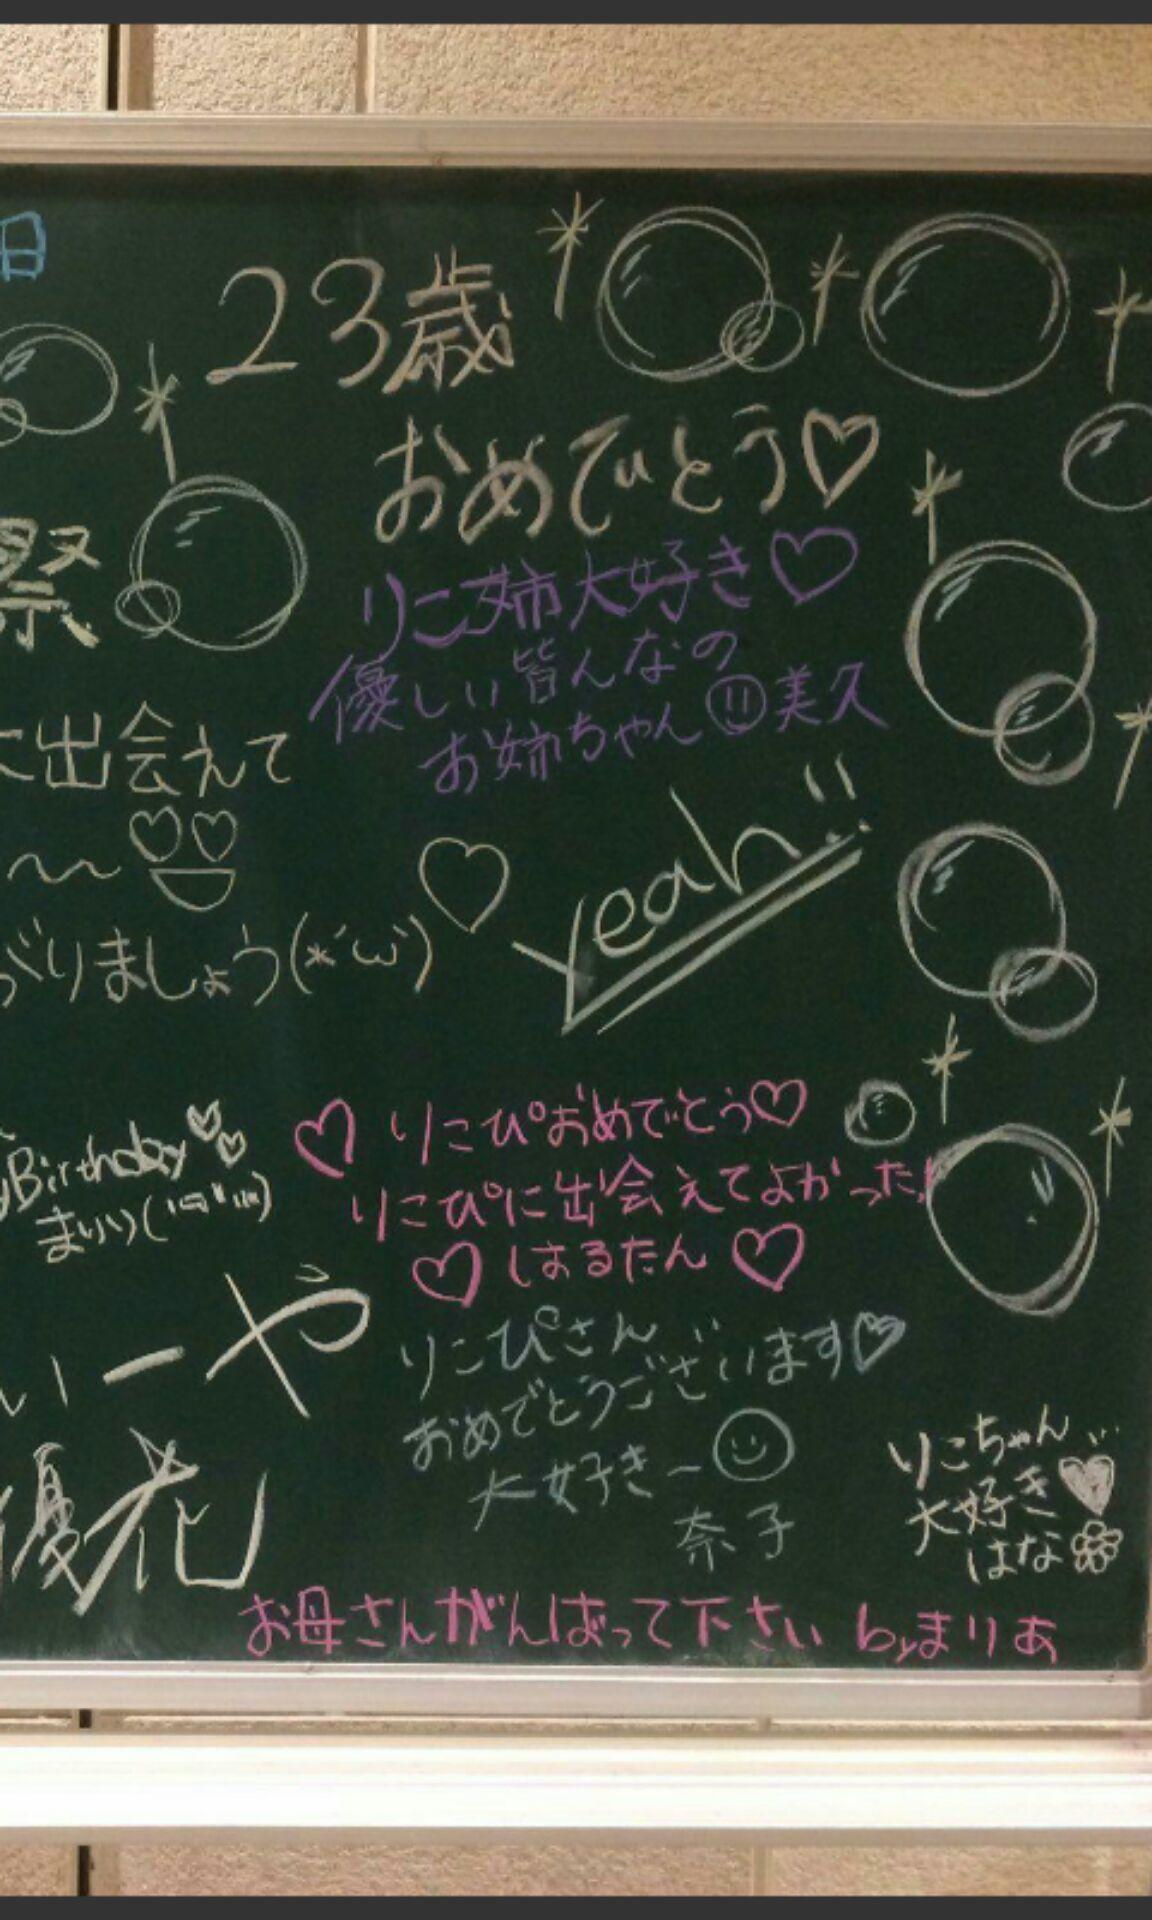 日
23歳
おめでとう♡
祭
りこ姉大好き♡
優しい皆んなの
お姉ちゃん美久
に出会えて
Yeah!!
がりましょう(*´ω`)♡
Birthday
まりい
♡りこぴおめでとう♡
りこぴに出会えてよかった!
♡はるたん♡
ぃーや
りこぴさん
おめでとうございます♡
大好きー
奈子
優花
りこちゃん
大好き
はな
お母さんがんばって下さい byまりあ